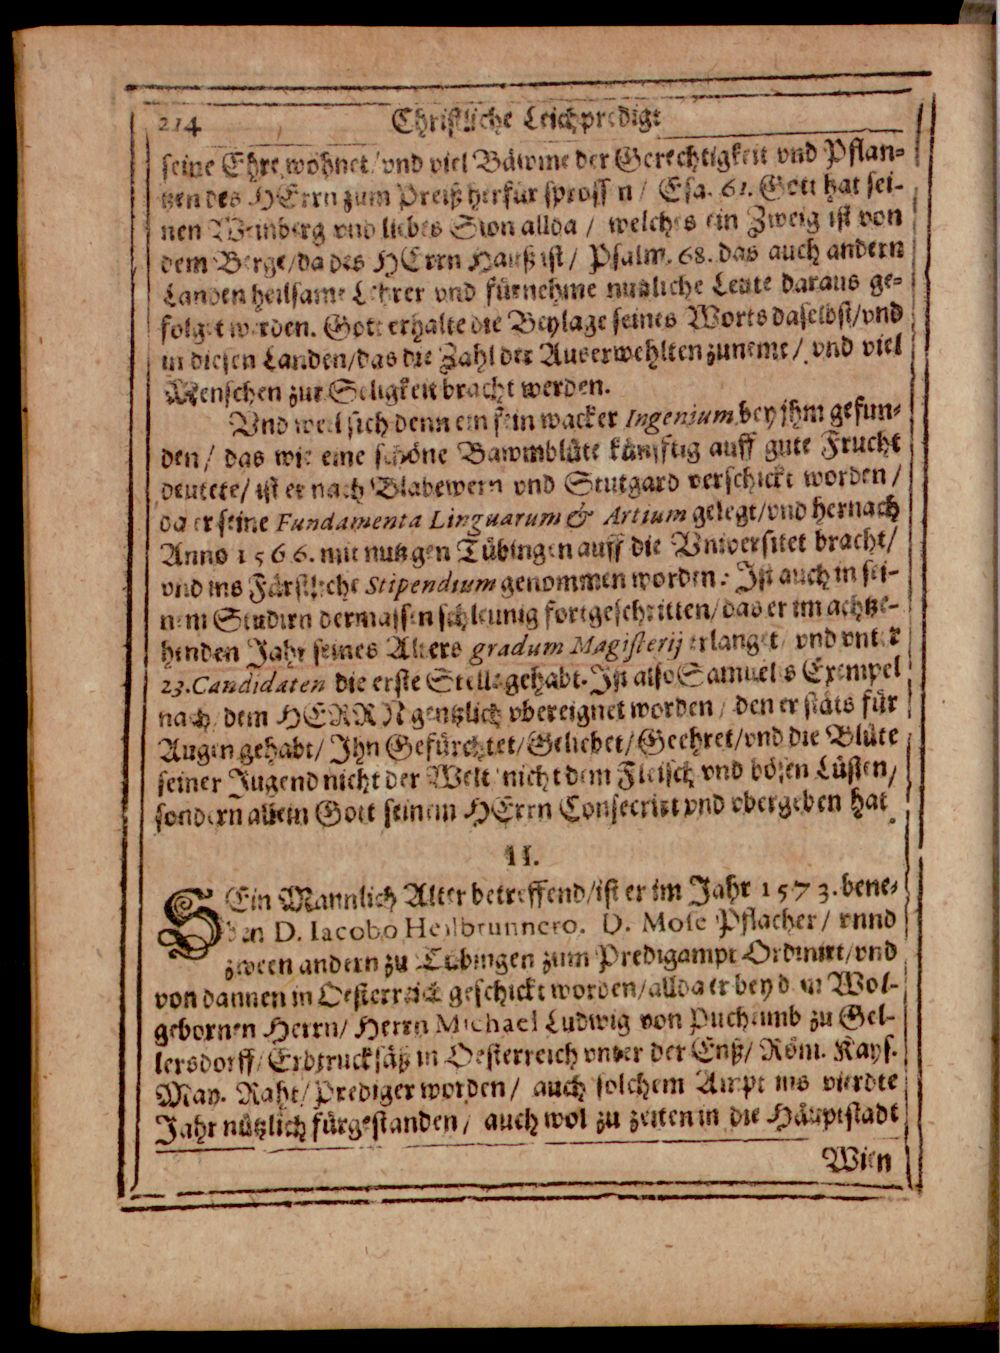 214 Christliche Leichpredigt
seine Ehre wohnet / vnd viel Bäwme der Gerechtigkeit vnd Pflan-
tzen des HErrn zum Preiß herfür sprossen / Esa. 61. Gott hat sei-
nen Weinberg vnd liebes Sion allda / welches ein Zweig ist von
dem Berge / da des HErrn Hauß ist / Psalm. 68. das auch andern
Landen heilsame Lehrer vnd fürnehme nutzliche Leute daraus ge-
folget werden. Gott erhalte die Beylage seines Worts daselbst / vnd
in diesen Landen / das die Zahl der Auserwehlten zuneme / vnd viel
Menschen zur Seligkeit bracht werden.
Vnd weil sich denn ein fein wacker Ingenium bey jhm gefun-
den / das wie eine schöne Bawmblüte künfftig auff gute Frucht
deutete / ist er nach Blabewern vnd Stutgard verschickt worden /
da er seine Fundamenta Linguarum & Artium gelegt / vnd hernach
Anno 1566. mit nutz gen Tübingen auff die Vniversitet bracht /
vnd ins Fürstliche Stipendium genommen worden: Ist auch in sei-
nem Studirn dermassen schleunig fortgeschritten / das er im achtze-
henden Jahr seines Alters gradum Magisterij erlanget / vnd vnter
23. Candidaten die erste Stelle gehabt. Ist also Samuels Exempel
nach / dem HERRN gentzlich vbereignet worden / den er stäts für
Augen gehabt / Ihn Gefürchtet / Geliebet / Geehret / vnd die Blüte
seiner Jugend nicht der Welt / nicht dem Fleisch vnd bösen Lüsten /
sondern allein Gott seinem HErrn Consecrirt vnd vbergeben hat.
II.
SEin Mannlich Alter betreffend / ist er im Jahr 1573. bene-
ben D. Iacobo Heilbrunnero. D. Mose Pflacher / vnnd
zween andern zu Tübingen zum Predigampt Ordinirt / vnd
von dannen in Oesterreich geschickt worden / allda er bey dem Wol-
gebornen Herrn / Herrn Michael Ludwig von Puchaimb zu Gel-
lersdorff / Erbtrucksäß in Oesterreich vnter der Enß / Röm. Kays.
May. Raht / Prediger worden / auch solchem Ampt ins vierdte
Jahr nützlich fürgestanden / auch wol zu zeiten in die Häuptstadt
Wien